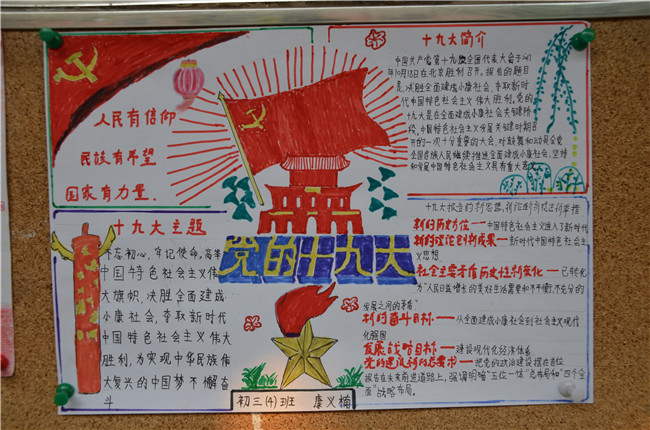 人民有信仰
民族有希望
国家有力量
十九大简介
中国共产党第十九次全国代表大会于2017
年10月18日在北京胜利召开。报告的题目
是:决胜全面建成小康社会,夺取新时
代中国特色社会主义伟大胜利。党的
十九大是在全面建成小康社会关键阶
段,中国特色社会主义发展关键时期召
开的一次十分重要的大会。对鼓舞和动员全党
全国各族人民继续推进全面建成小康社会,坚持
和发展中国特色社会主义具有重大意义
十九大主题
不忘初心,牢记使命,高举
中国特色社会主义伟
大旗帜,决胜全面建成
小康社会,夺取新时代
中国特色社会主义伟大
胜利,为实现中华民族伟
大复兴的中国梦不懈奋
斗
党的十九大
十九大报告的新思想、新论断、新提法、新举措
新的历史方位——中国特色社会主义进入了新时代
新的理论创新成果——新时代中国特色社会主
义思想
社会主要矛盾历史性新变化——已转化
为“人民日益增长的美好生活需要和不平衡不充分的
发展之间的矛盾”
新的奋斗目标——从全面建成小康社会到社会主义现代
化强国
发展战略目标——建设现代化经济体系
党的建设新的总要求——把党的政治建设摆在首位
报告在未来前进道路上,强调明确“五位一体”总布局和“四个全
面”战略布局。
初三(4)班 康义楠